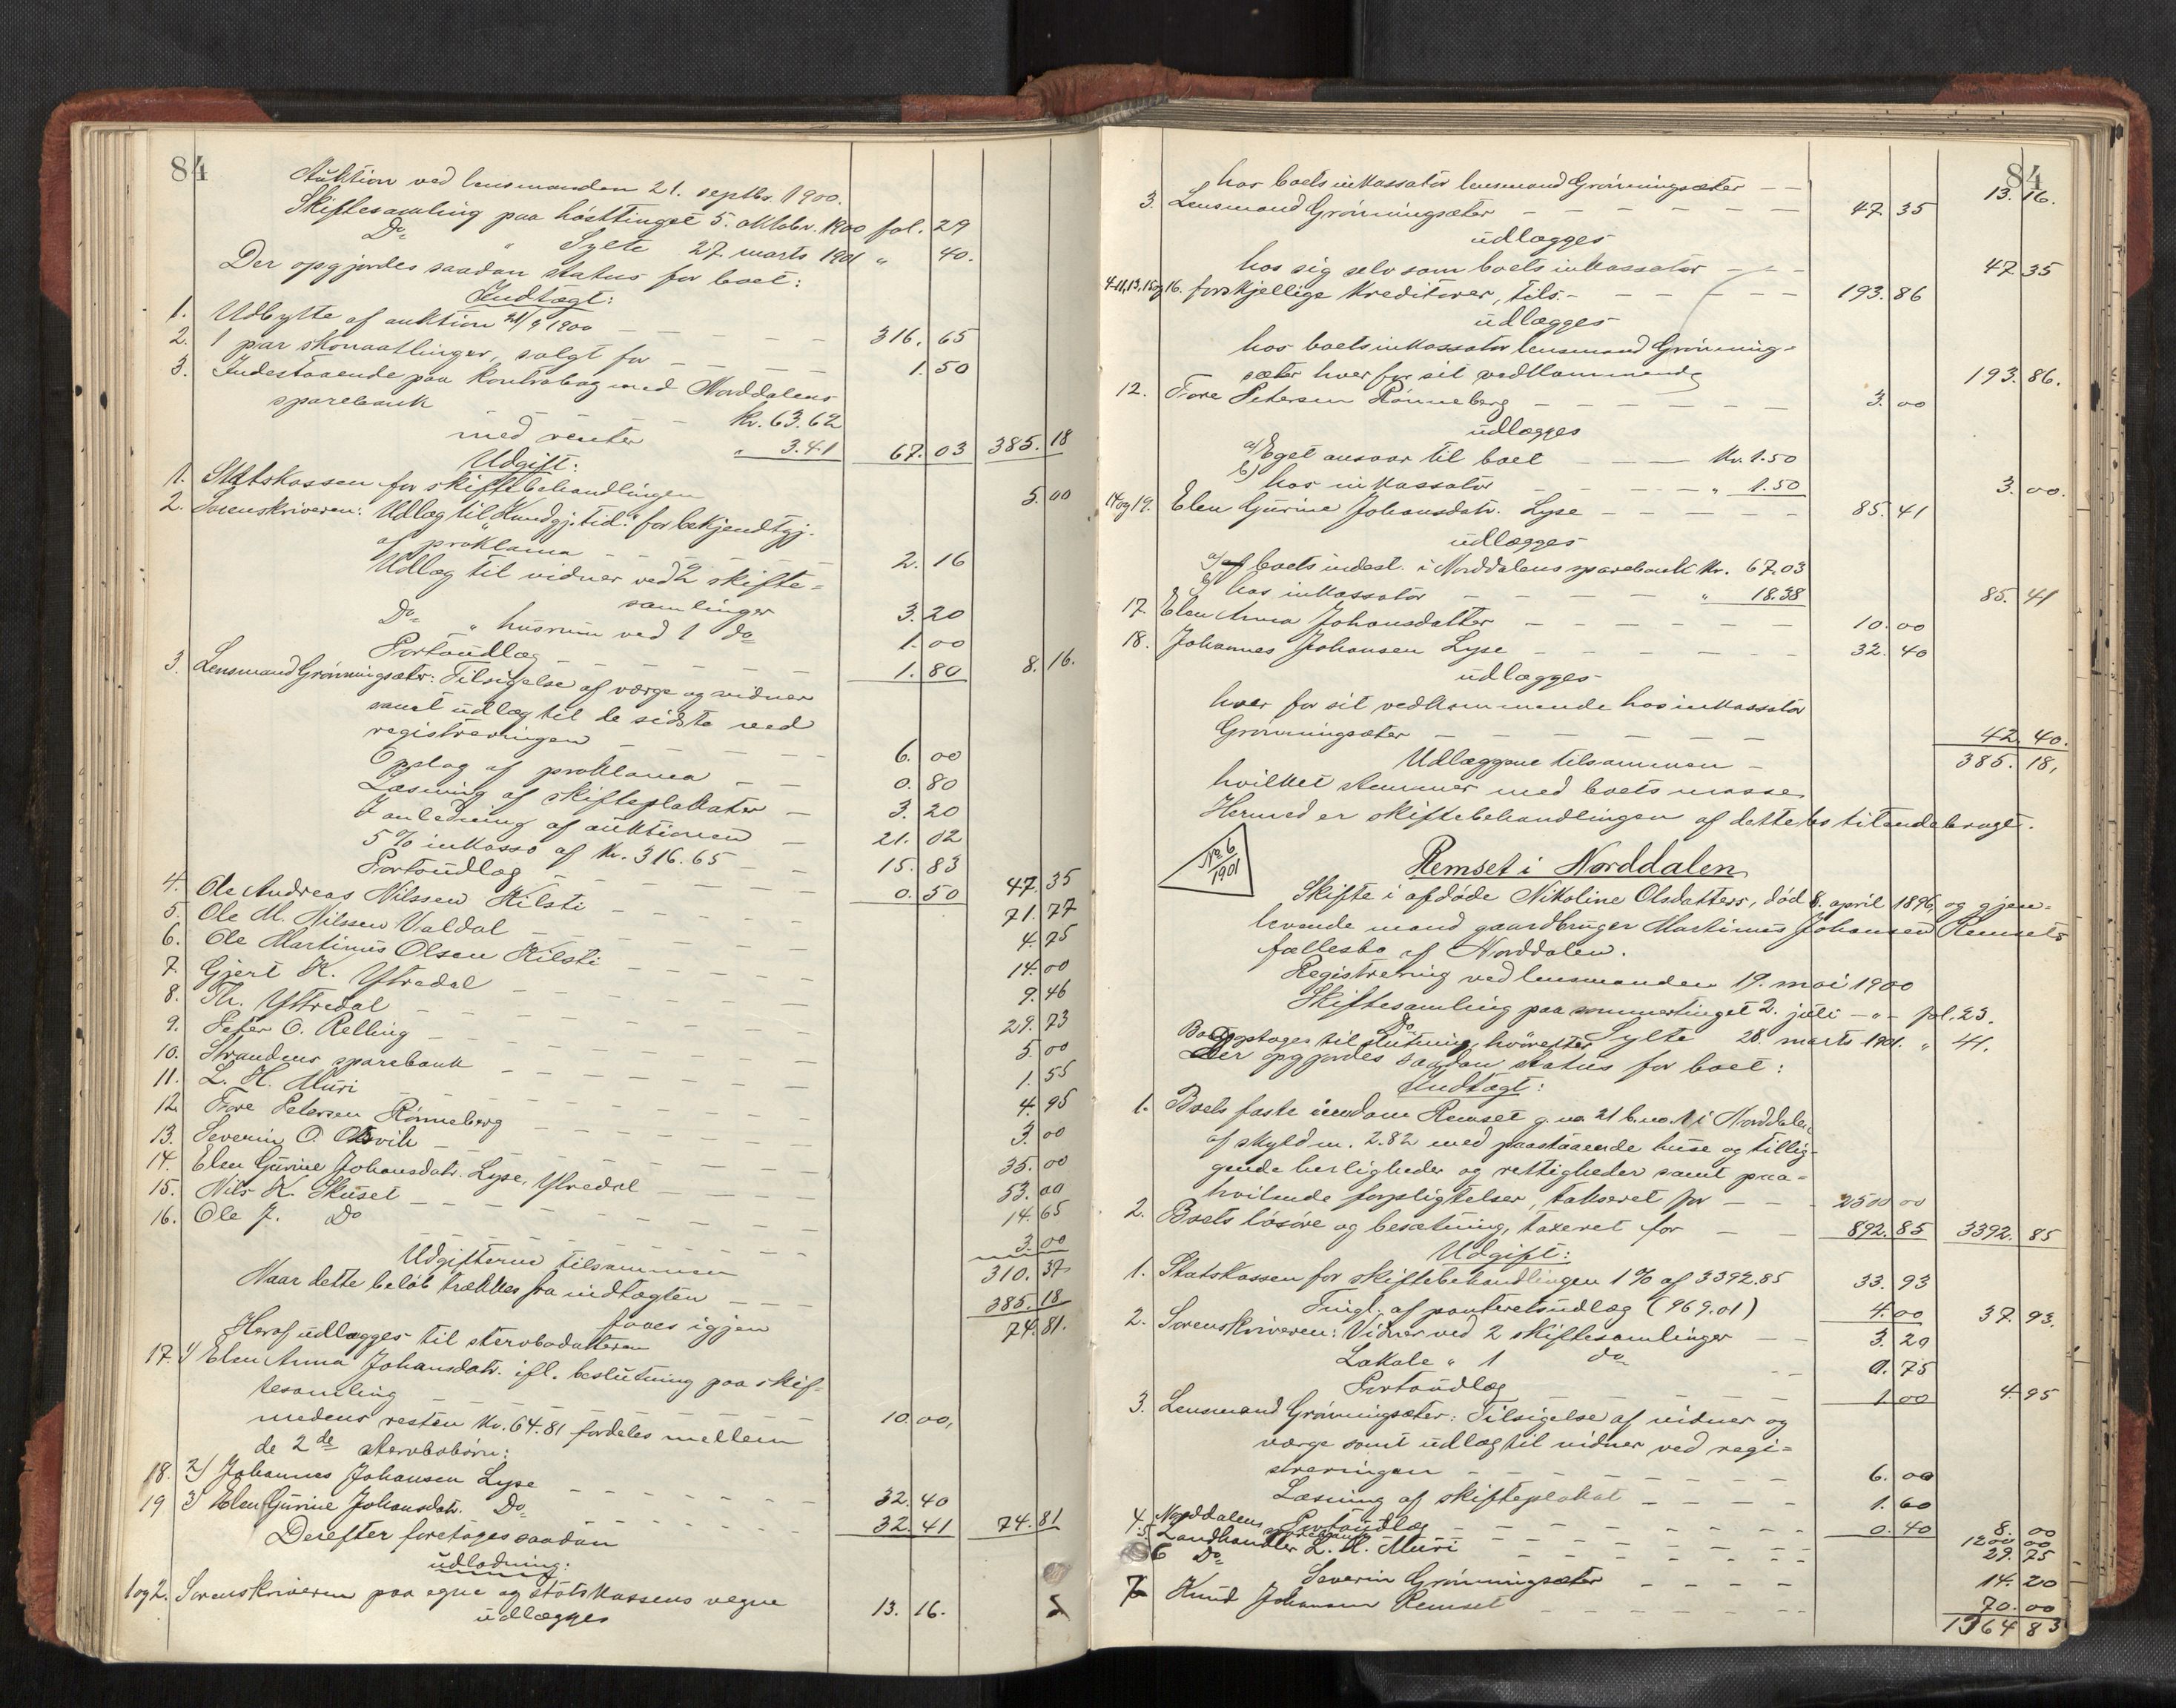 84
Auktion ved lensmanden 21. septbr. 1900.
Skiftesamling paa hösttinget 5. oktobr. 1900 fol. 29
Do " Sylte 27. marts 1901 " 40.
Der opgjordes saadan status for boet:
Indtægt:
1. Udbytte af auktion 21/9 1900 — 316. 65
2. 1 par skonaatlinger, solgt for — 1. 50
3. Indestaaende paa kontrabog med Norddalens
sparebank kr. 63.62
med renter " 3.41 67. 03 385. 18
Udgift:
1. Statskassen for skiftebehandlingen 5. 00
2. Sorenskriveren: Udlæg til "Kundgj. tid." for bekjendtgj.
af proklama — 2. 16
Udlæg til vidner ved 2 skifte-
samlinger 3. 20
Do " husrum ved 1 do 1. 00
Portoudlæg — 1. 80 8. 16.
3. Lensmand Grönningsæter: Tilsigelse af værge og vidner
samt udlæg til de sidste ved
registreringen — 6. 00
Opslag af proklama — 0. 80
Læsning af skifteplakater — 3. 20
I anledning af auktionen — 21. 02
5 % inkasso af kr. 316.65 — 15. 83
Portoudlæg — 0. 50 47. 35
4. Ole Andreas Nilssen Kilsti — 71. 77
5. Ole M. Nilssen Valdal — 4. 75
6. Ole Martinus Olsen Kilsti — 14. 00
7. Gjert K. Ytredal — 9. 46
8. Th. Yttredal — 29. 73
9. Peter O. Relling — 5. 00
10. Strandens sparebank — 1. 55
11. L. H. Muri — 4. 95
12. Tore Petersen Rönneberg — 3. 00
13. Severin O. — 35. 00
14. Elen Gurine Johansdatr. Lyse, Ytredal — 53. 00
15. Nils K. Skuset — 14. 65
16. Ole J. Do — 3. 00
Udgifterne tilsammen 310. 37
Naar dette belöb trækkes fra indtægten — 385. 18
faaes igjen 74. 81.
Heraf udlægges til stervbodatteren
17. 1) Elen Anna Johansdatr. ifl. beslutning paa skif-
tesamling — 10. 00,
medens resten kr. 64.81 fordeles mellem
de 2de stervbobörn:
18. 2) Johannes Johansen Lyse — 32. 40
19 3) Elen Gurine Johansdatr. Do — 32. 41 74. 81
Derefter foretages saadan
udlodning:
1 og 2. Sorenskriveren paa egne og statskassens vegne 13. 16.
udlægges
84
hos boets inkassator lensmand Grönningsæter — 13. 16.
3. Lensmand Grönningsæter — 47. 35
udlægges
hos sig selv som boets inkassator — 47. 35
4-11, 13, 15 og 16. forskjellige kreditorer, tils. — 193. 86
udlægges
hos boets inkassator lensmand Grönning-
sæter hver for sit vedkommende 193. 86.
12. Tore Petersen Rönneberg — 3. 00
udlægges
a) Eget ansvar til boet — kr. 1.50
b) hos inkassator — " 1.50 3. 00.
14 og 19. Elen Gurine Johansdatr. Lyse — 85. 41
udlægges
a) af boets indest. i Norddalens sparebank kr. 67.03
b) hos inkassator — " 18.38 85. 41
17. Elen Anna Johansdatter — 10. 00
18. Johannes Johansen Lyse — 32. 40
udlægges
hver for sit vedkommende hos inkassator
Grönningsæter — 42. 40.
Udlæggene tilsammen — 385. 18,
hvilket stemmer med boets masse.
Hermed er skiftebehandlingen af dette bo tilendebragt.
No 6
1901
Remset i Norddalen
Skifte i afdöde Nikoline Olsdatters, död 8. april 1896, og gjen-
levende mand gaardbruger Martinus Johansen Remsets
fællesbo af Norddalen.
Registrering ved lensmanden 19. mai 1900
Skiftesamling paa sommertinget 2. juli — " — fol. 23.
Do Sylte 28. marts 1901. " 41.
Boet optages til slutning, hvorefter
Der opgjordes saadan status for boet:
Indtægt:
1. Boets faste eiendom Remset g. no. 21 b. no. 1 i Norddalen
af skyld m. 2.82 med paastaaende huse og tillig-
gende herligheder og rettigheder samt paa-
hvilende forpligtelser, takseret for — 2500 00
2. Boets lösöre og besætning, taxeret for — 892. 85 3392. 85
Udgift:
1. Statskassen for skiftebehandlingen 1 % af 3392.85 33. 93
Tingl. af panteretsudlæg (969.01) 4. 00 37. 93.
2. Sorenskriveren: Vidner ved 2 skiftesamlinger — 3. 20
Lokale " 1 do — 0. 75
Portoudlæg — 1 00 4. 95
3. Lensmand Grönningsæter: Tilsigelse af vidner og
værge samt udlæg til vidner ved regi-
streringen — 6. 00
Læsning af skifteplakat — 1. 60
Portoudlæg — 0. 40 8. 00
4. Norddalens sparebank — 1200 00
5. Landhandler L. H. Muri — 29. 75
6 Do Severin Grönningsæter — 14. 20
7 Knud Johansen Remset — 70. 00
1364 83